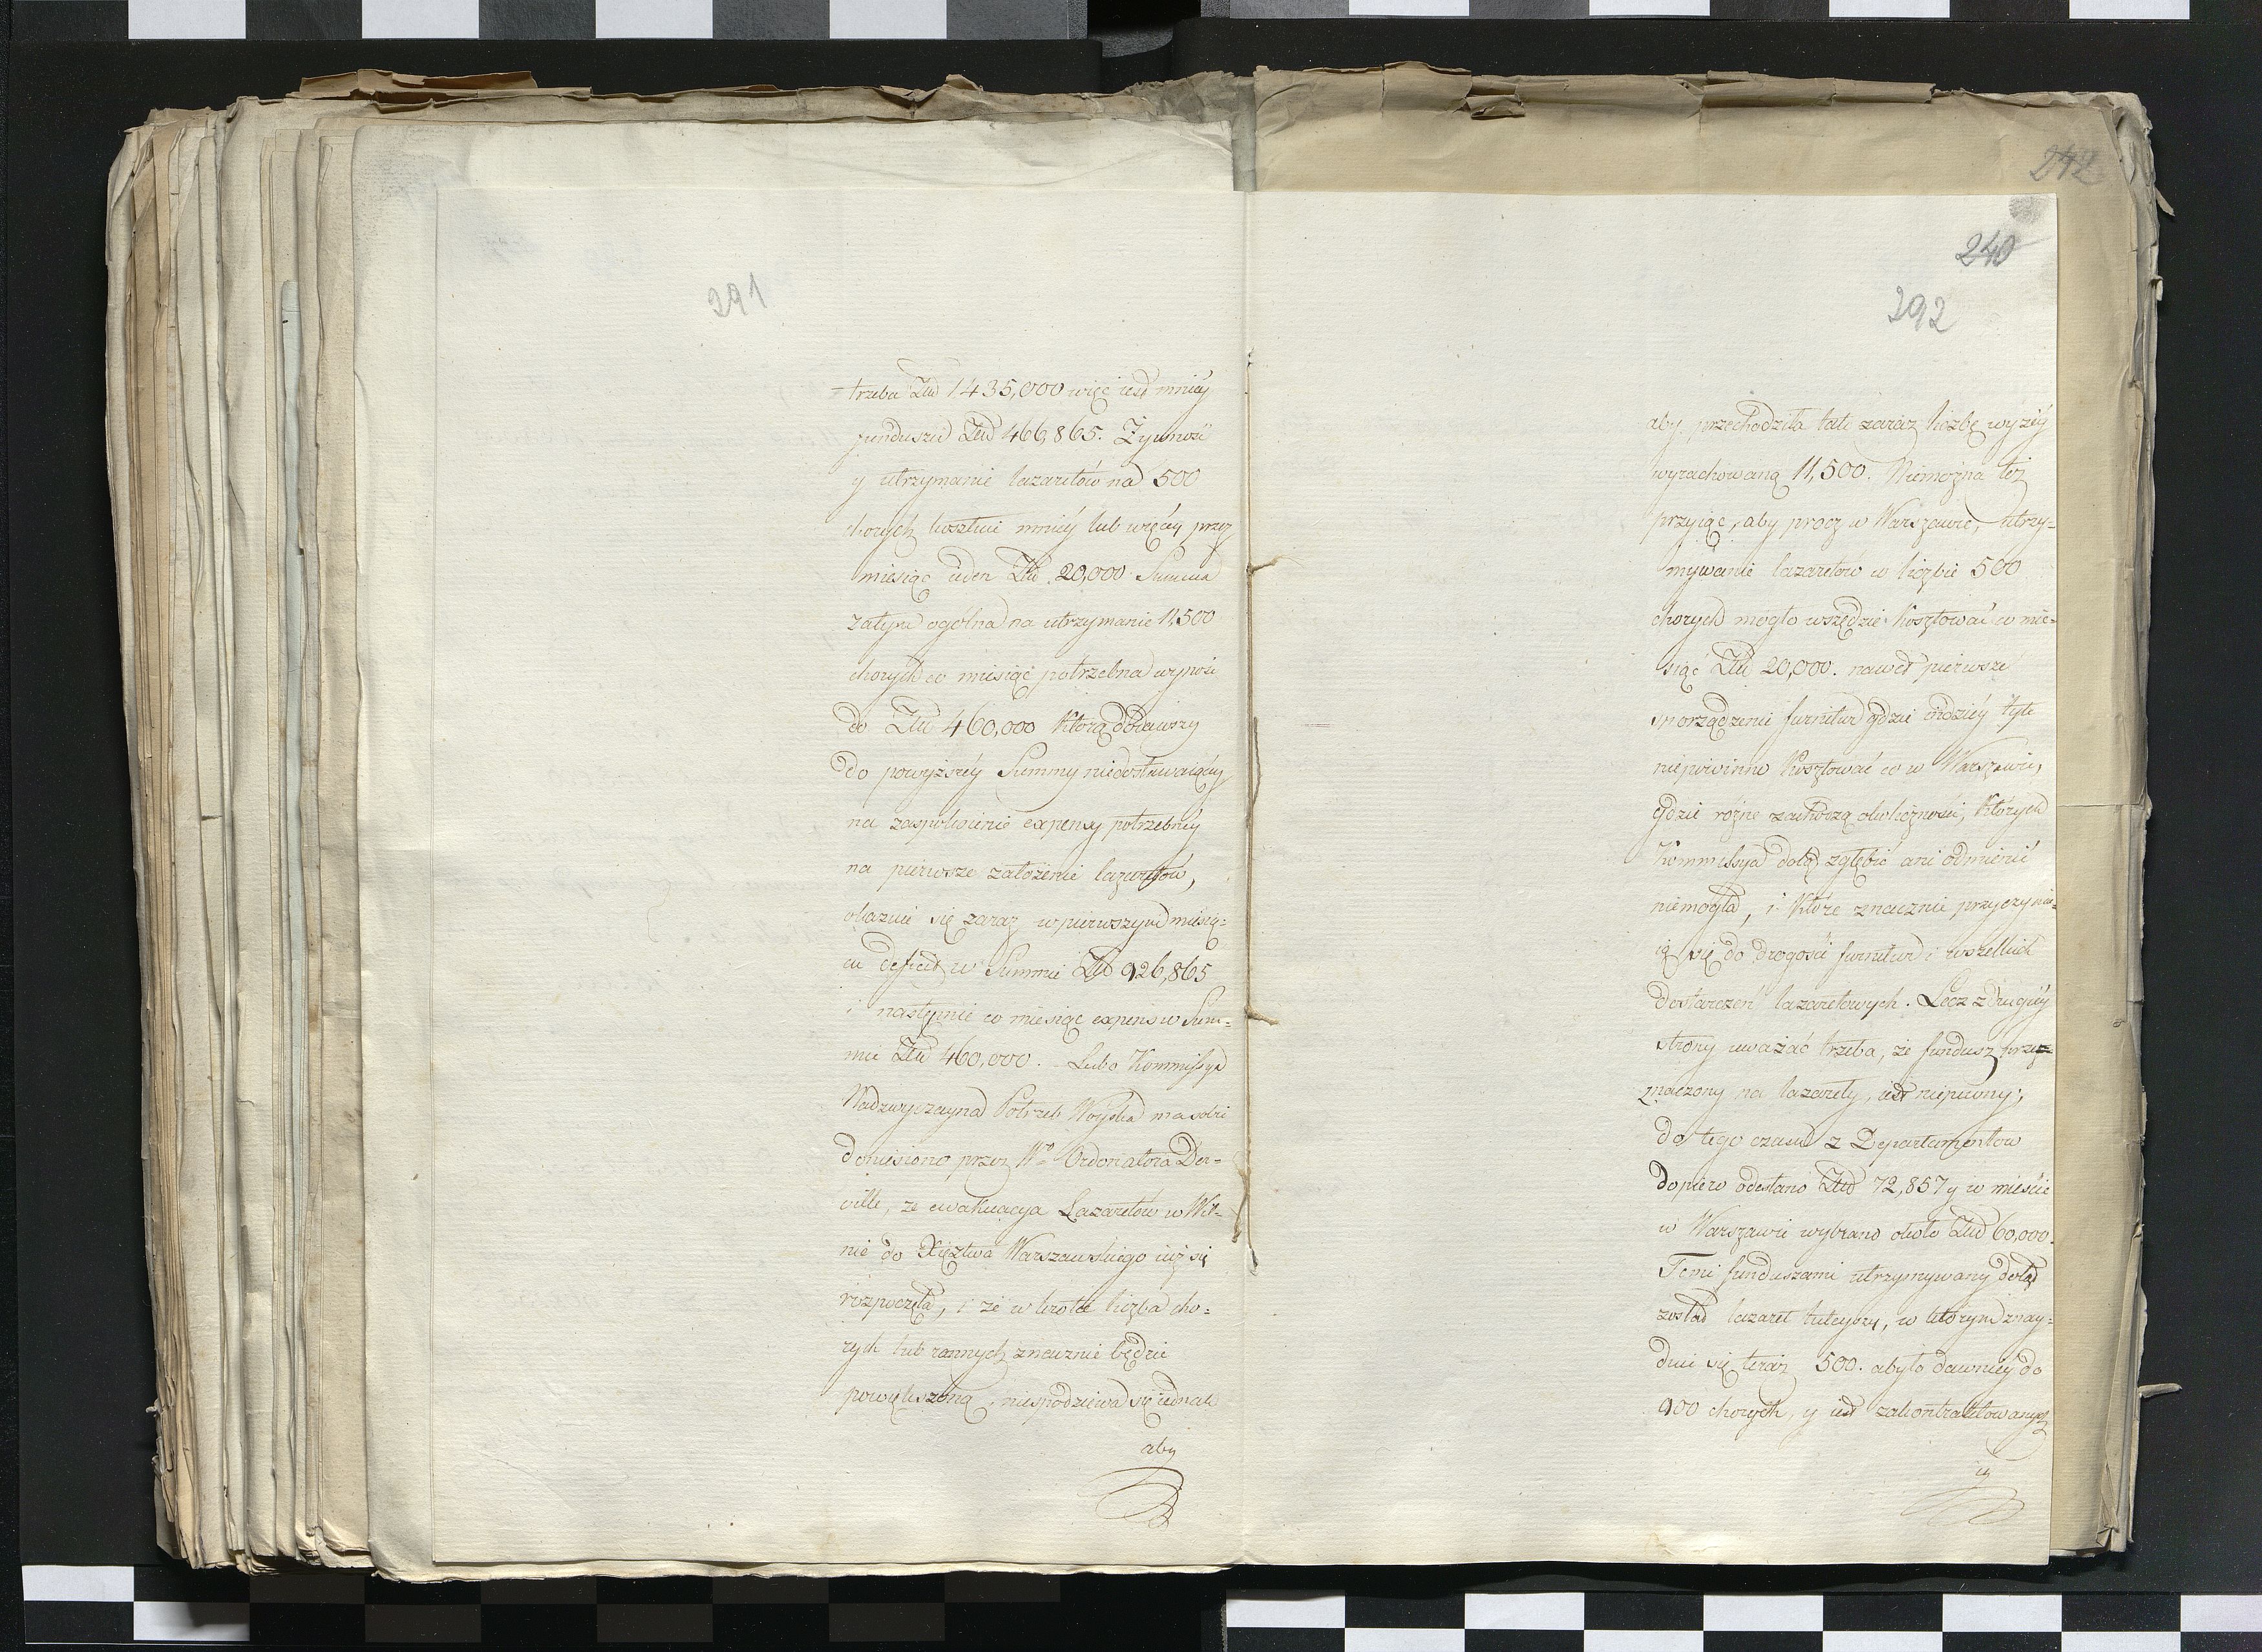 291
trzeba Złł 1435,000 więc iest mniéy
funduszu Złł 466,865. Żywność
y utrzymanie lazaretów na 500
chorych kosztuie mniéy lub więcéy przez
miesiąc ieden Złł 20,000 Summa
zatym ogólna na utrzymanie 11,500
chorych co miesiąc potrzebna wynosi
do Złł 460,000 którą dodawszy
do powyższéy Summy niedostawaiącéy
na zaspokoienie expensy potrzebnéy
na pierwsze założenie lazaretów,
okazuie się zaraz w pierwszym miesią=
cu deficit w Summie Złł 926,865
i następnie co miesiąc expens w Sum=
mie Złł 460,000. Lubo Kommissya
Nadzwyczayna Potrzeb Woyska ma sobie
doniesiono przez Wgo Ordonatora Der=
ville, że ewakuacya Lazaretów w Wil=
nie do Xięztwa Warszawskiego iuż się
rozpoczęła, i że w krotce liczba cho=
rych lub rannych znacznie będzie
powiększoną, niespodziewa się iednak
aby
242
240
292
aby przechodziła tak zaraz liczbę wyżéy
wyrachowaną 11,500. Niemożna też
przyiąc, aby procz w Warszawie, utrzy=
mywanie lazaretów w liczbie 500
chorych mogło wszędzie kosztować co mie=
siąc Złł 20,000. nawet pierwsze
sporządzenie furnitur gdzie indziéy tyle
niepowinno kosztować co w Warszawie,
gdzie różne zachodzą okoliczności, których
Kommissya dotąd zgłębić ani odmienić
niemogła, i które znacznie przyczynia=
ią się do drogości furnitur i wszelkich
dostarczeń lazaretowych. Lecz z drugiéy
strony uważać trzeba, że fundusz prze=
znaczony na lazarety, iest niepewny;
do tego czasu z Departamentow
dopiero odesłano Złł 72,857 y w mieście
w Warszawie wybrano około Złł 60,000.
Temi funduszami utrzymywany dotąd
został lazaret tuteyszy, w którym znay=
duie się teraz 500. a było dawniéy do
900 chorych, y iest zakontraktowanych